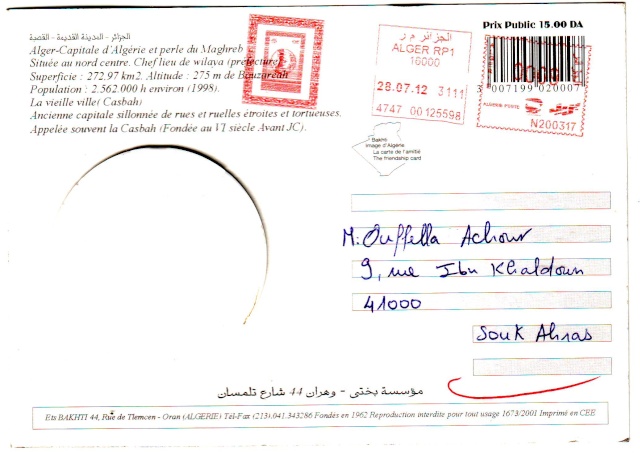 الجزائر - المدينة القديمة - القصبة
Alger-Capitale d'Algérie et perle du Maghreb
Située au nord centre. Chef lieu de wilaya (prefecture)
Superficie : 272.97 km2. Altitude : 275 m de Bouzareah
Population : 2.562.000 h environ (1998).
La vieille ville( Casbah)
Ancienne capitale sillonnée de rues et ruelles étroites et tortueuses.
Appelée souvent la Casbah (Fondée au VI siècle Avant JC).
الجزائر م ر
ALGER RP1
16000
28.07.12 3111
4747 00 125598
Prix Public 15.00 DA
3 007199 020007
ALGERIE POSTE
N200317
Bakhti
Image d'Algérie
La carte de l'amitié
The friendship card
M. Ouffella Achour
9, rue Ibn Khaldoun
41000
Souk Ahras
مؤسسة بختي - وهران 44 شارع تلمسان
Ets BAKHTI 44, Rue de Tlemcen - Oran (ALGERIE) Tél-Fax (213).041.343286 Fondés en 1962 Reproduction interdite pour tout usage 1673/2001 Imprimé en CEE